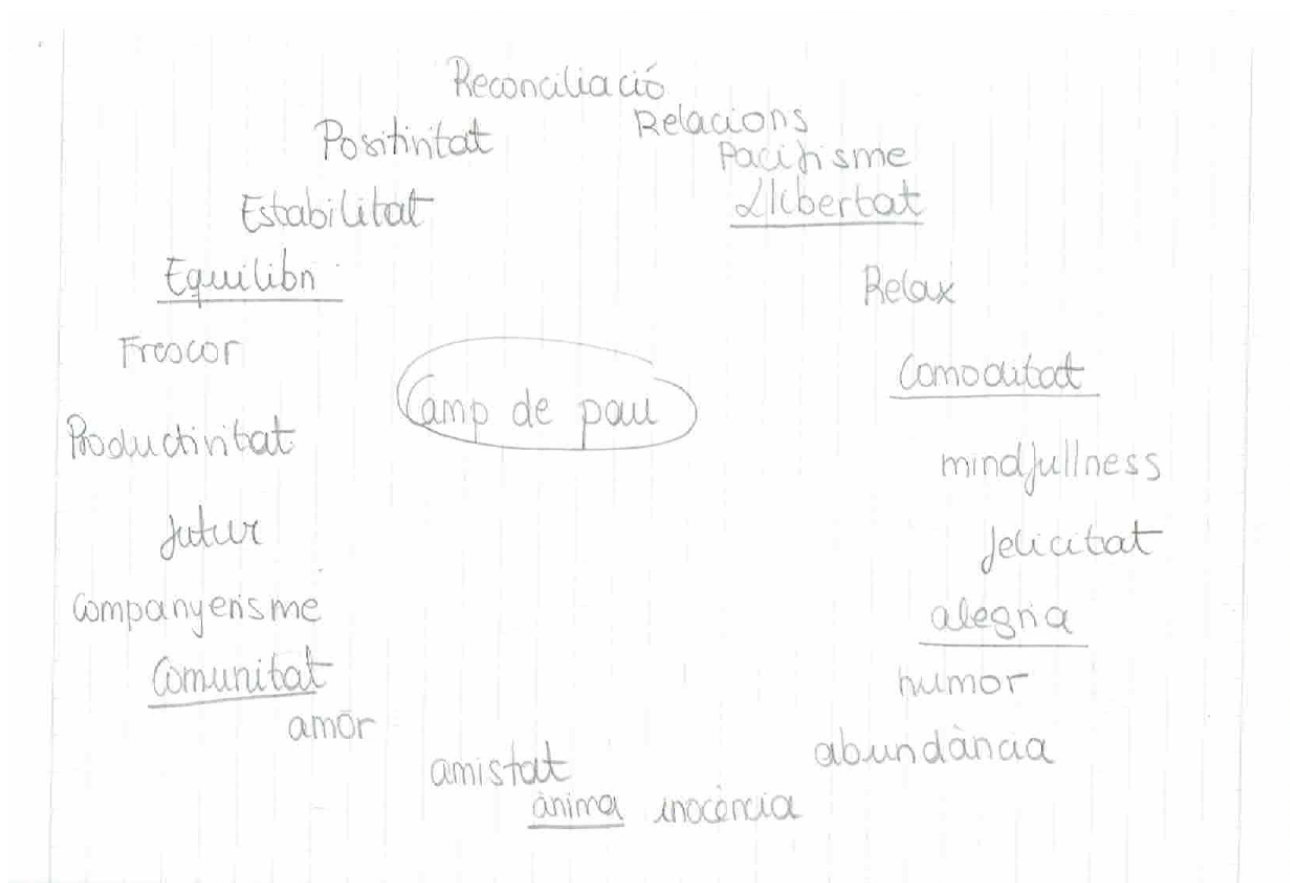 Reconciliació
Relacions
Positivitat
Pacifisme
Llibertat
Estabilitat
Equilibri
Relax
Frescor
Comoditat
Camp de pau
Productivitat
mindfullness
futur
felicitat
Companyerisme
alegria
Comunitat
humor
amor
abundància
amistat
ànima inocència